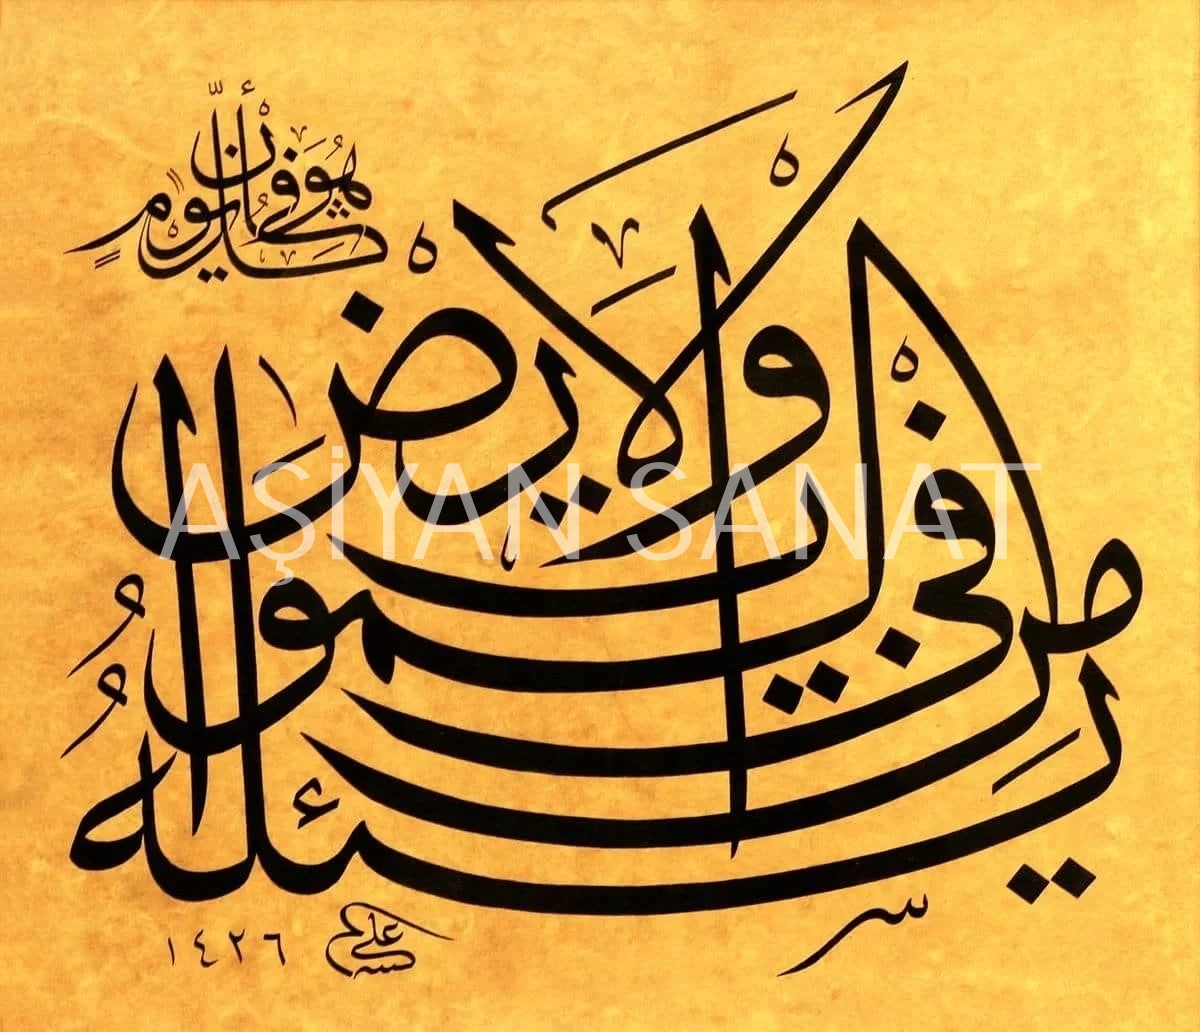 يَسْئَلُهُ مَنْ فِي السَّمٰوَاتِ وَالْأَرْضِ
كُلَّ يَوْمٍ هُوَ فِي شَأْنٍ
علي
١٤٢٦
AŞİYAN SANAT